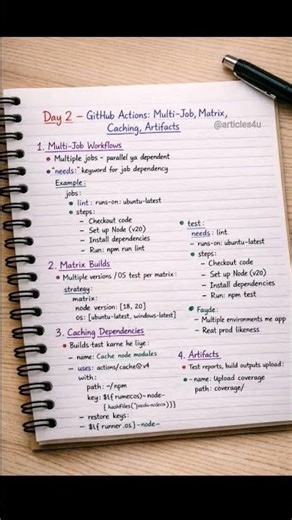 Day 2 – GitHub Actions: Multi-Job, Matrix,
Caching, Artifacts
@articles4u
1. Multi-Job Workflows
• Multiple jobs - parallel ya dependent
• "needs:" keyword for job dependency
Example:
jobs:
• lint: runs-on: ubuntu-latest
• steps:
– Checkout code
– Set up Node (v20)
– Install dependencies
– Run: npm run lint
• test:
needs: lint
– runs-on: ubuntu-latest
• steps:
– Checkout code
– Set up Node (v20)
– Install dependencies
– Run: npm test
• Fayde:
– Multiple environments me app
– Reat prod likeness
2. Matrix Builds
• Multiple versions / OS test per matrix:
strategy:
matrix:
node version: [18, 20]
os: [ubuntu-latest, windows-latest]
3. Caching Dependencies
• Builds test karne he liye:
– name: Cache node modules
– uses: actions/cache@v4
with:
path: ~/npm
key: $l{ runneros}-node-
– restore keys:
– $l{ runner.os }-node-
4. Artifacts
• Test reports, build outputs upload:
– name: Upload coverage
path: coverage/